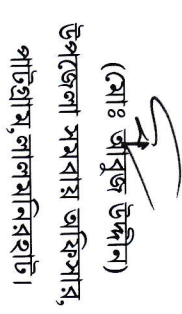 (মোঃ তাবুজ উদ্দীন)
উপজেলা সমবায় অফিসার,
পাটগ্রাম, লালমনিরহাট।